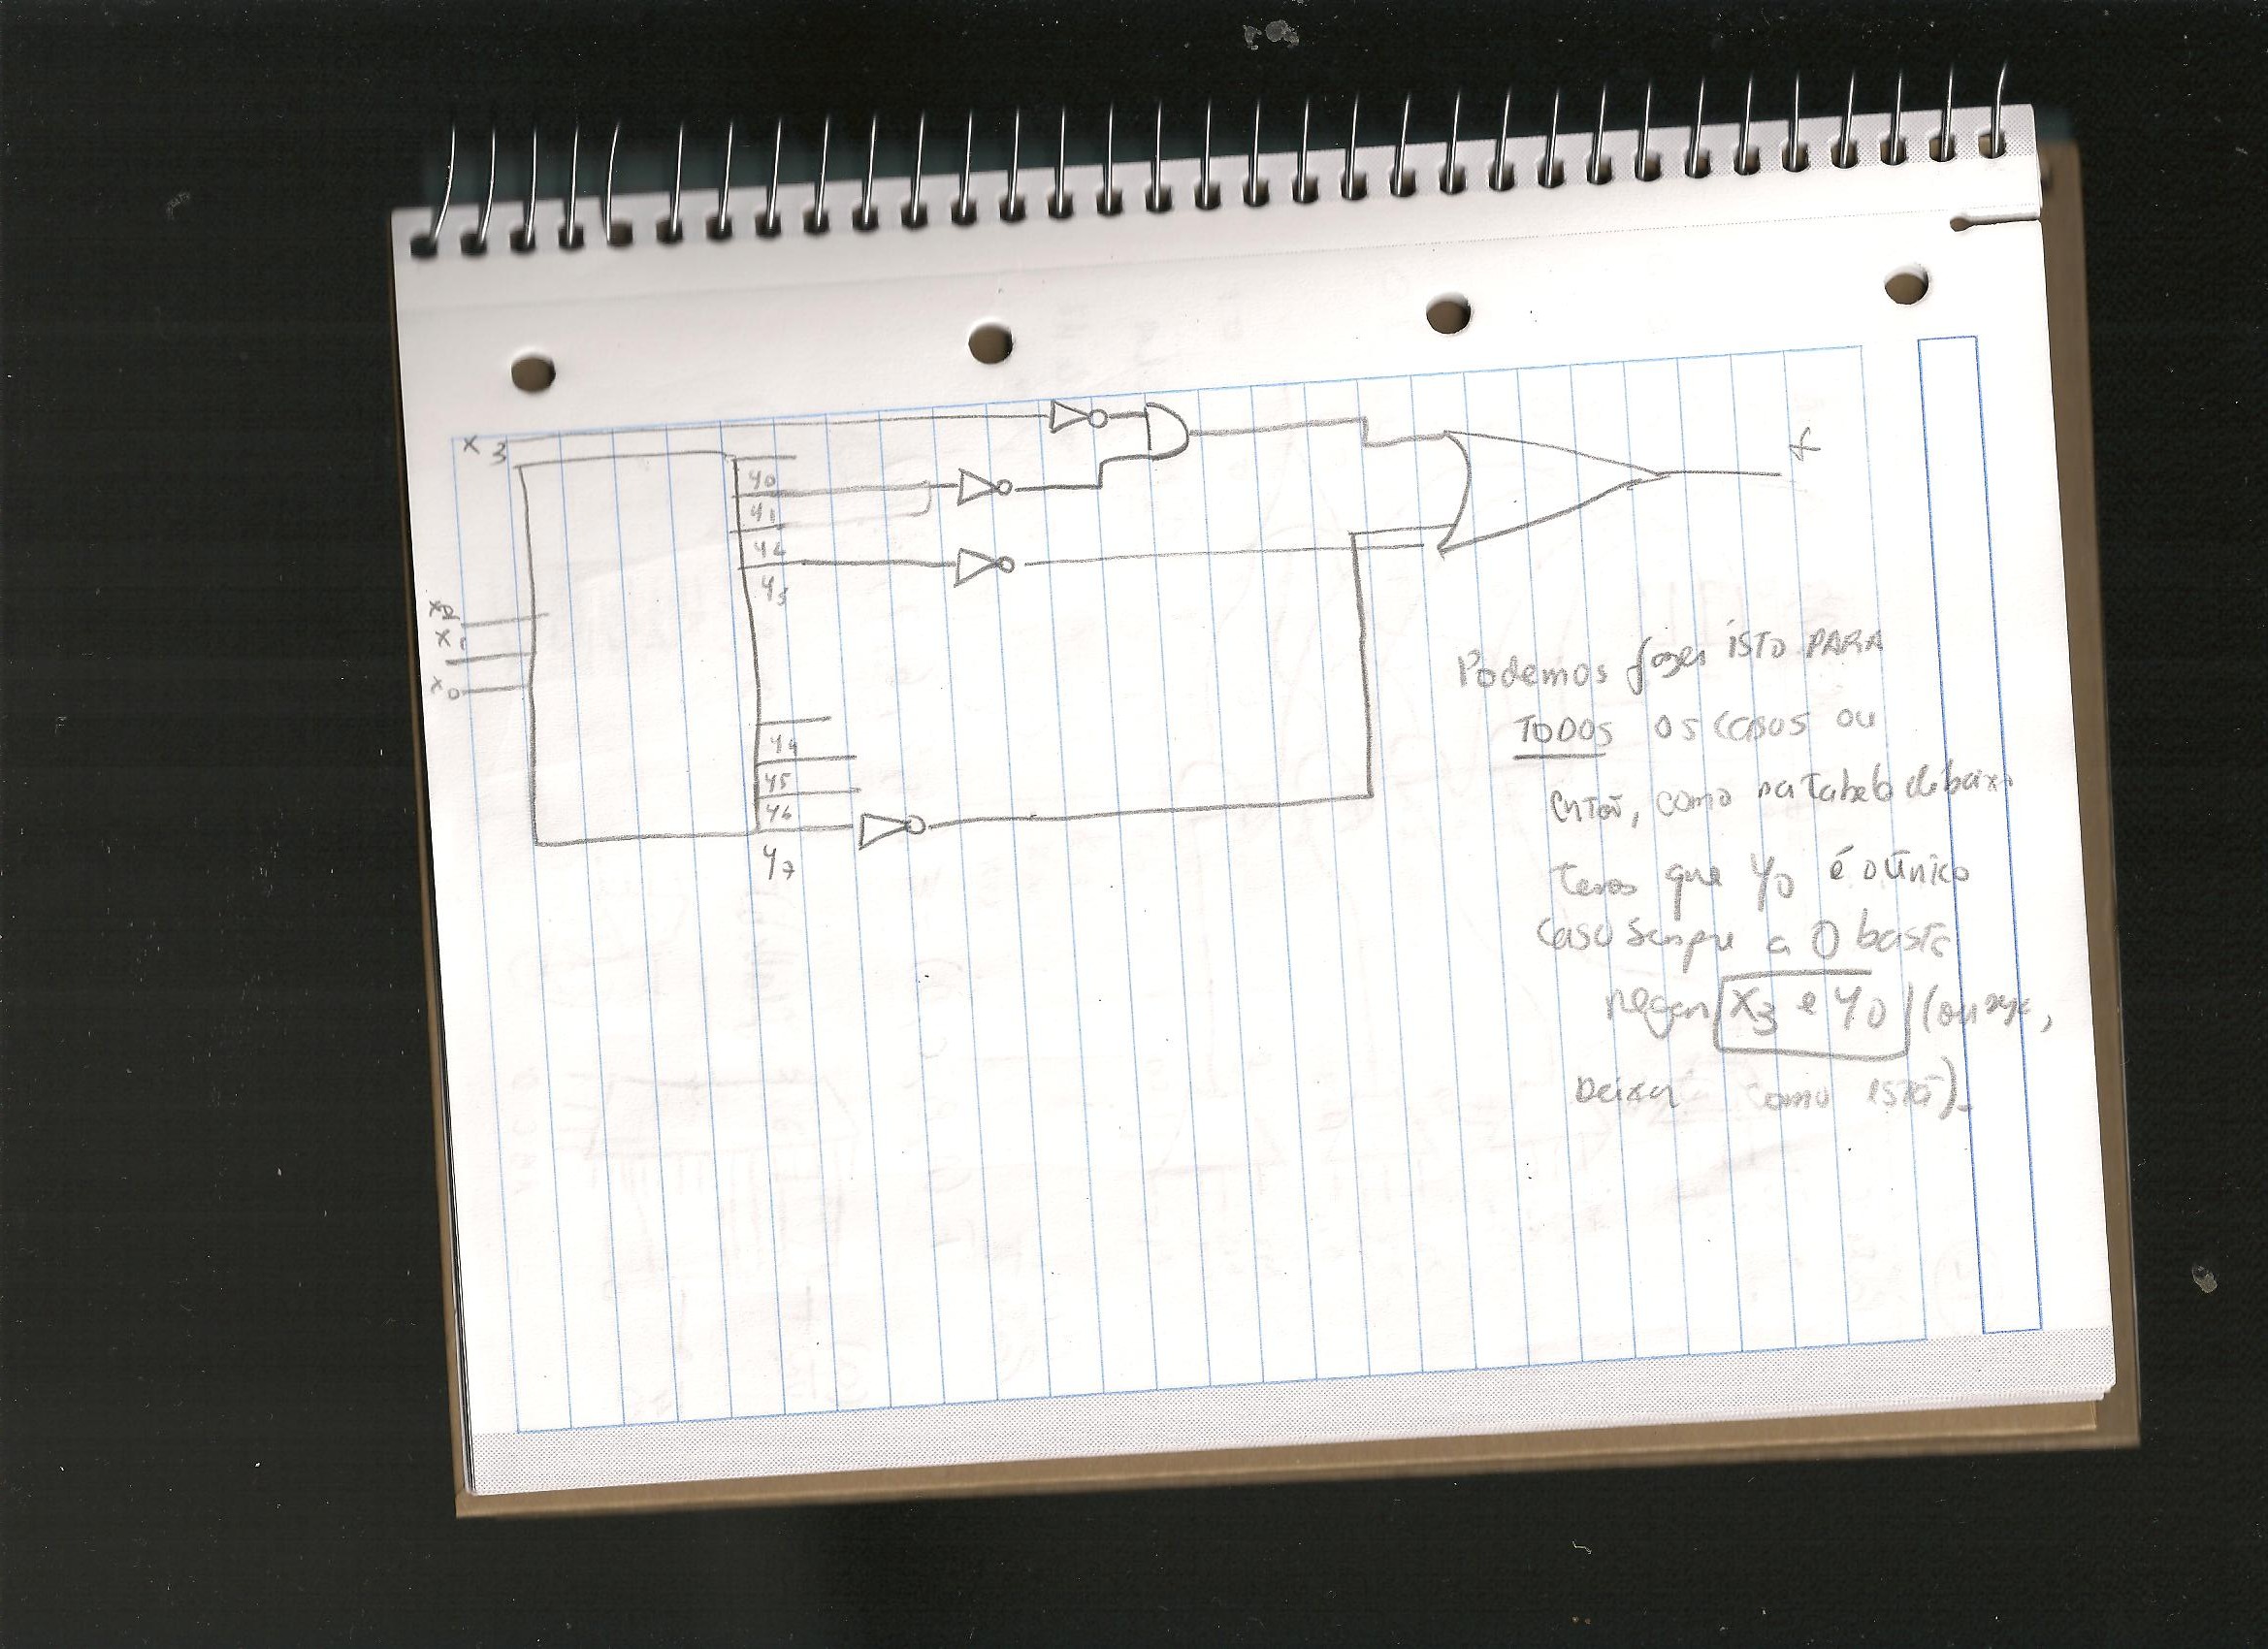 x3
f
y0
y1
y2
y3
x2
x1
x0
y4
y5
y6
y7
Podemos fazer isto PARA
TODOS os casos ou
então, como na tabela debaixo
temos que y0 é o único
caso sempre a 0 basta
negar x3 e y0 (ou seja,
Deixar como está).